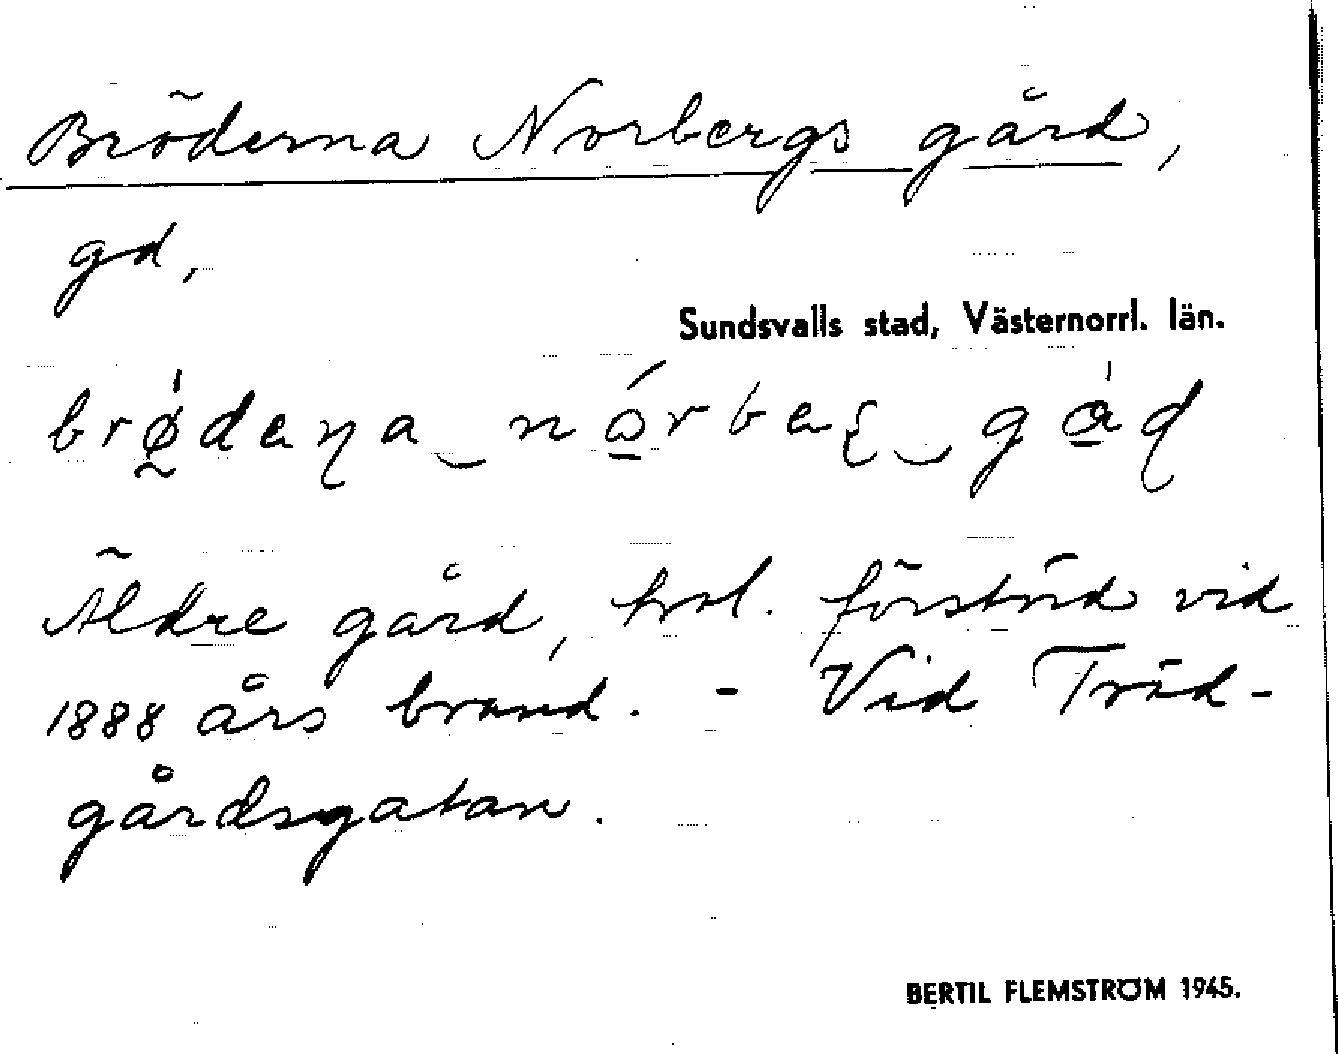 Bröderna Norbergs gård,
gd,
Sundsvalls stad, Västernorrl. län.
Äldre gård, trol. förstörd vid
1888 års brand. - Vid Träd-
gårdsgatan.
BERTIL FLEMSTRÖM 1945.